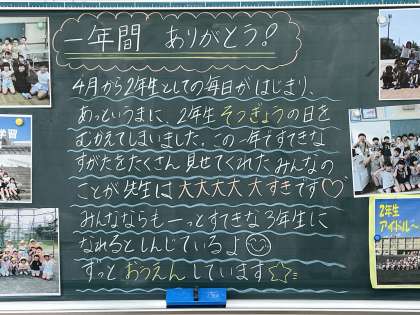 一年間 ありがとう!
4月から2年生としての毎日がはじまり、
あっというまに、2年生 そつぎょうの日を
むかえてしまいました。この一年ですてきな
すがたをたくさん 見せてくれた みんなの
ことが 先生は 大大大大 大すきです♡
みんなならも一っとすてきな3年生に
なれるとしんじているよ☺
ずっと おうえん しています☆彡
2年生
アイドル〜